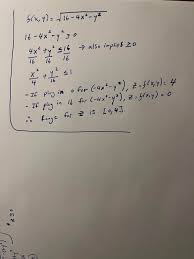 f(x,y) = √16-4x²-y²
16-4x²-y² ≥ 0
4x²/16 + y²/16 ≤ 16/16 → also implies ≥ 0
x²/4 + y²/16 ≤ 1
- If plug in 0 for (-4x²-y²), z = f(x,y) = 4
- If plug in 16 for (-4x²-y²), z = f(x,y) = 0
∴ Range for z is [0,4]